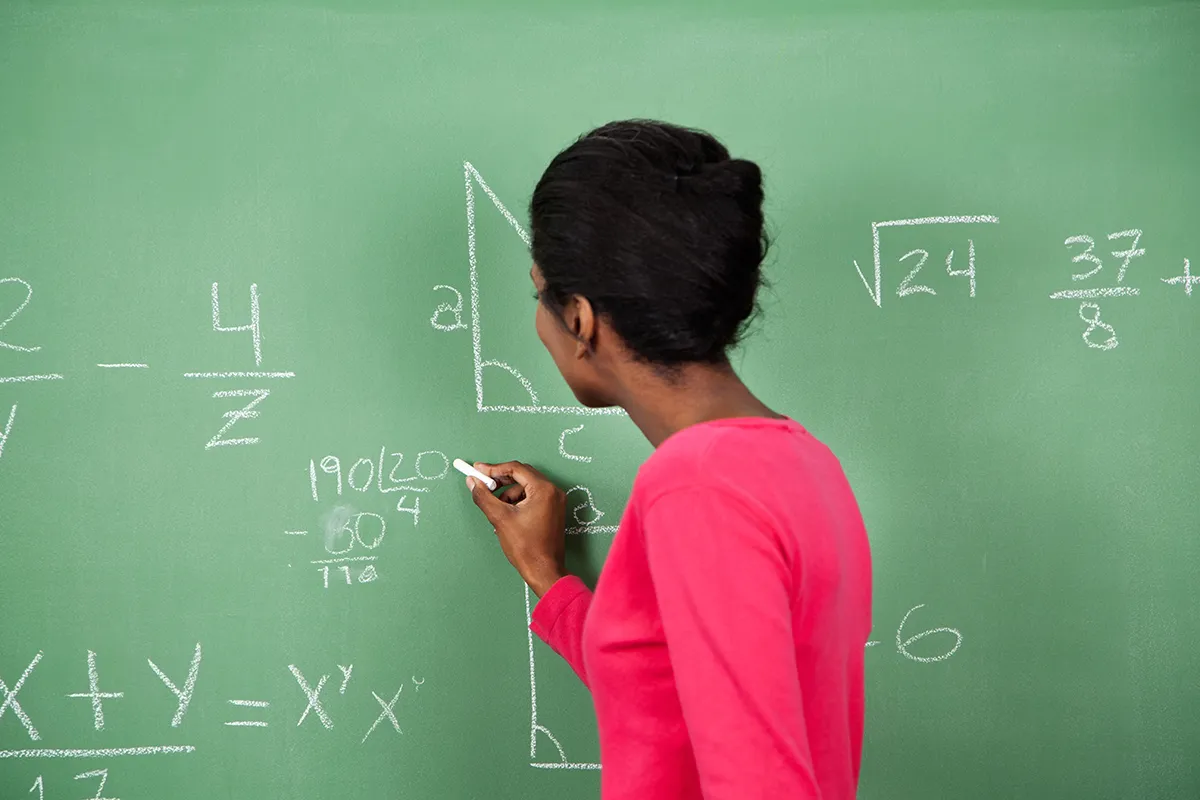 2
4
-
Z
a
c
√24
37
8
+
190 20
4
- 80
110
a
- 6
X + Y = X^Y X^Y
17